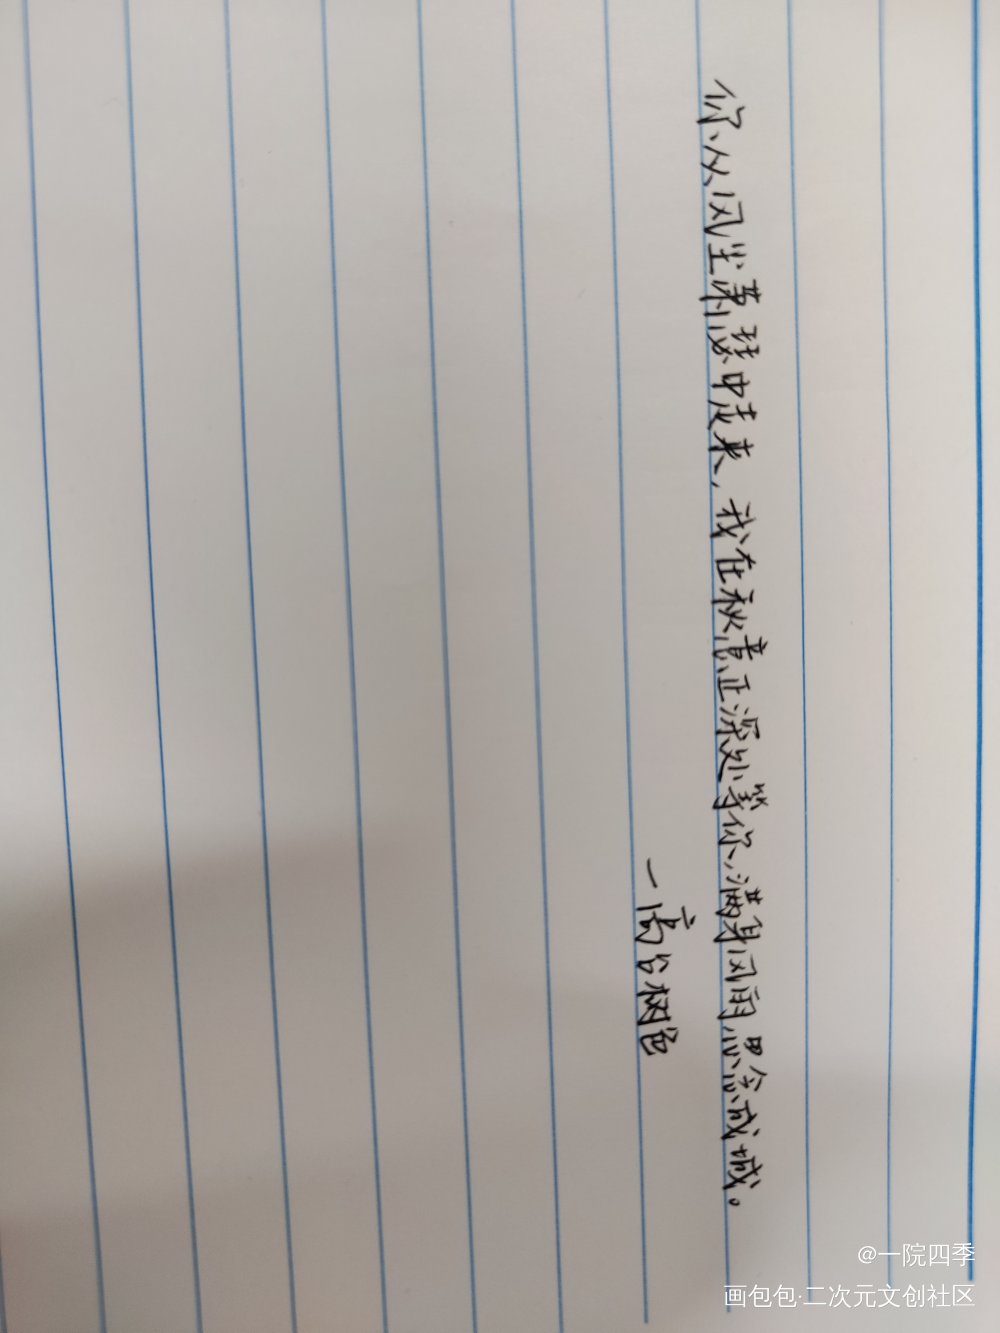 你从风尘萧瑟中走来，我在秋意正深处等你，满身风雨思念成城。
一高台树色
@一院四季
画包包·二次元文创社区